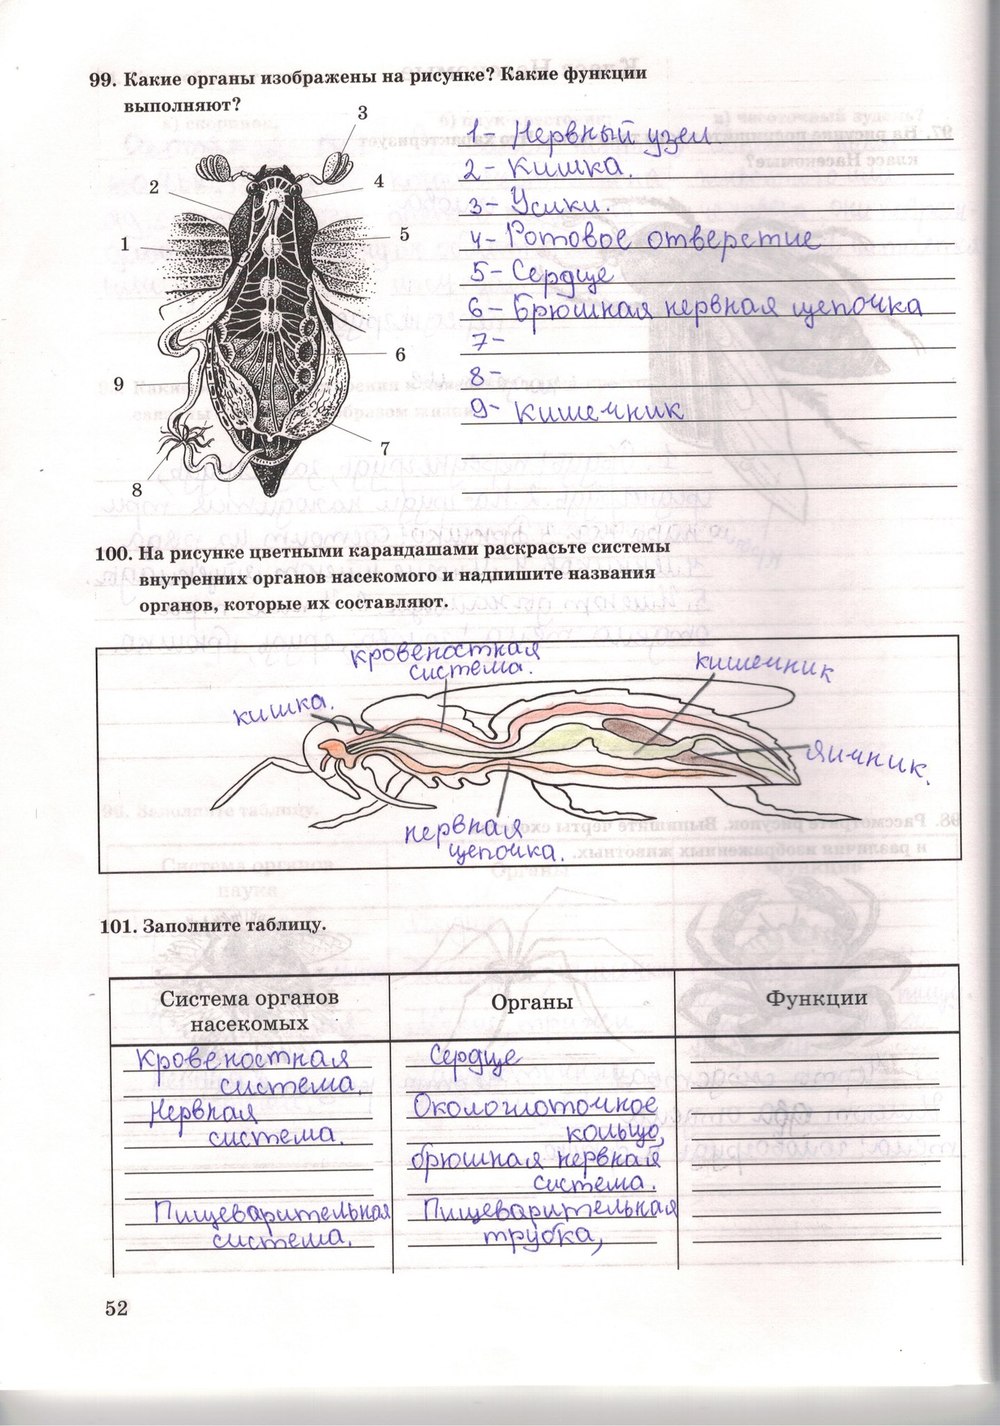 99. Какие органы изображены на рисунке? Какие функции
выполняют?
3
2
4
1
5
6
9
7
8
1- Нервный узел
2- Кишка.
3- Усики.
4- Ротовое отверстие
5- Сердце
6- Брюшная нервная цепочка
7-
8-
9- кишечник
100. На рисунке цветными карандашами раскрасьте системы
внутренних органов насекомого и надпишите названия
органов, которые их составляют.
кровеностная
система.
кишечник
кишка.
Яичник.
нервная
цепочка.
101. Заполните таблицу.
Система органов
насекомых
Органы
Функции
Кровеностная
система.
Сердце
Нервная
система.
Окологлоточное
кольцо,
брюшная нервная
система.
Пищеварительная
система.
Пищеварительная
трубка,
52